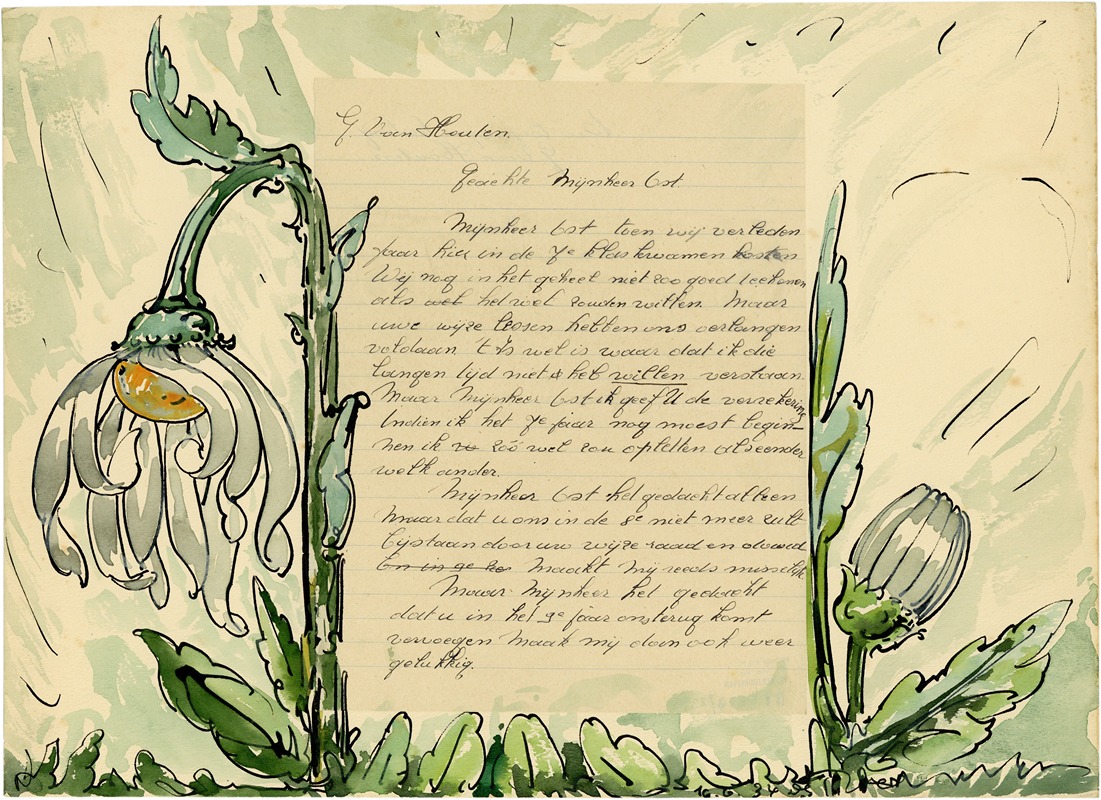 G. Van Houten.
Geächte Mijnheer Ost.
Mijnheer Ost toen wij verleden
jaar hier in de 7e klas kwamen kosten
Wij nog in het geheel niet zoo goed teekenen
als wel het wel zouden willen. Maar
uwe wijze lessen hebben ons verlangen
voldaan 't Is wel is waar dat ik die
langen tijd niet heb willen verstaan.
Maar Mijnheer Ost ik geef U de verzekering
Indien ik het 7e jaar nog moest begin-
nen ik zóó wel zou opletten als eender
welk ander.
Mijnheer Ost het gedacht alleen
maar dat u ons in de 8e niet meer zult
bijstaan door uw wijze raad en
maakt mij reeds misselijk
Maar Mijnheer het gedacht
dat u in het 9e jaar ons terug komt
vervoegen maak mij dan ook weer
gelukkig.